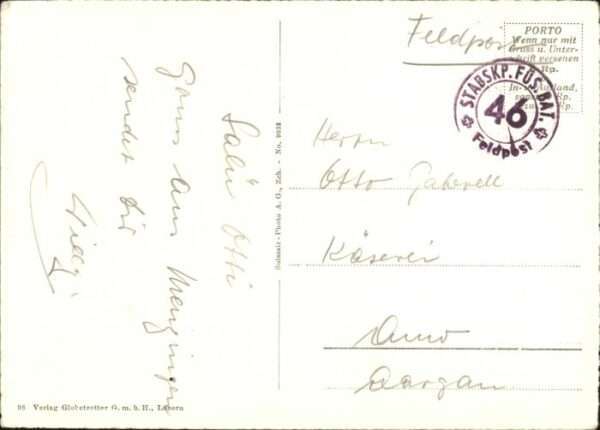 Salü Otti
Gruss aus Menzingen
sendet dir
Willy
Feldpost
PORTO
Wenn nur mit
Gruss u. Unter-
schrift versehen
Rp.
Ausland,
Rp.
Rp.
STABSKP. FÜS. BAT.
46
Feldpost
Herrn
Otto
Käserei
Auw
Aargau
Suissair-Photo A. G., Zch. - No. 9023
98 Verlag Globetrotter G. m. b. H., Luzern